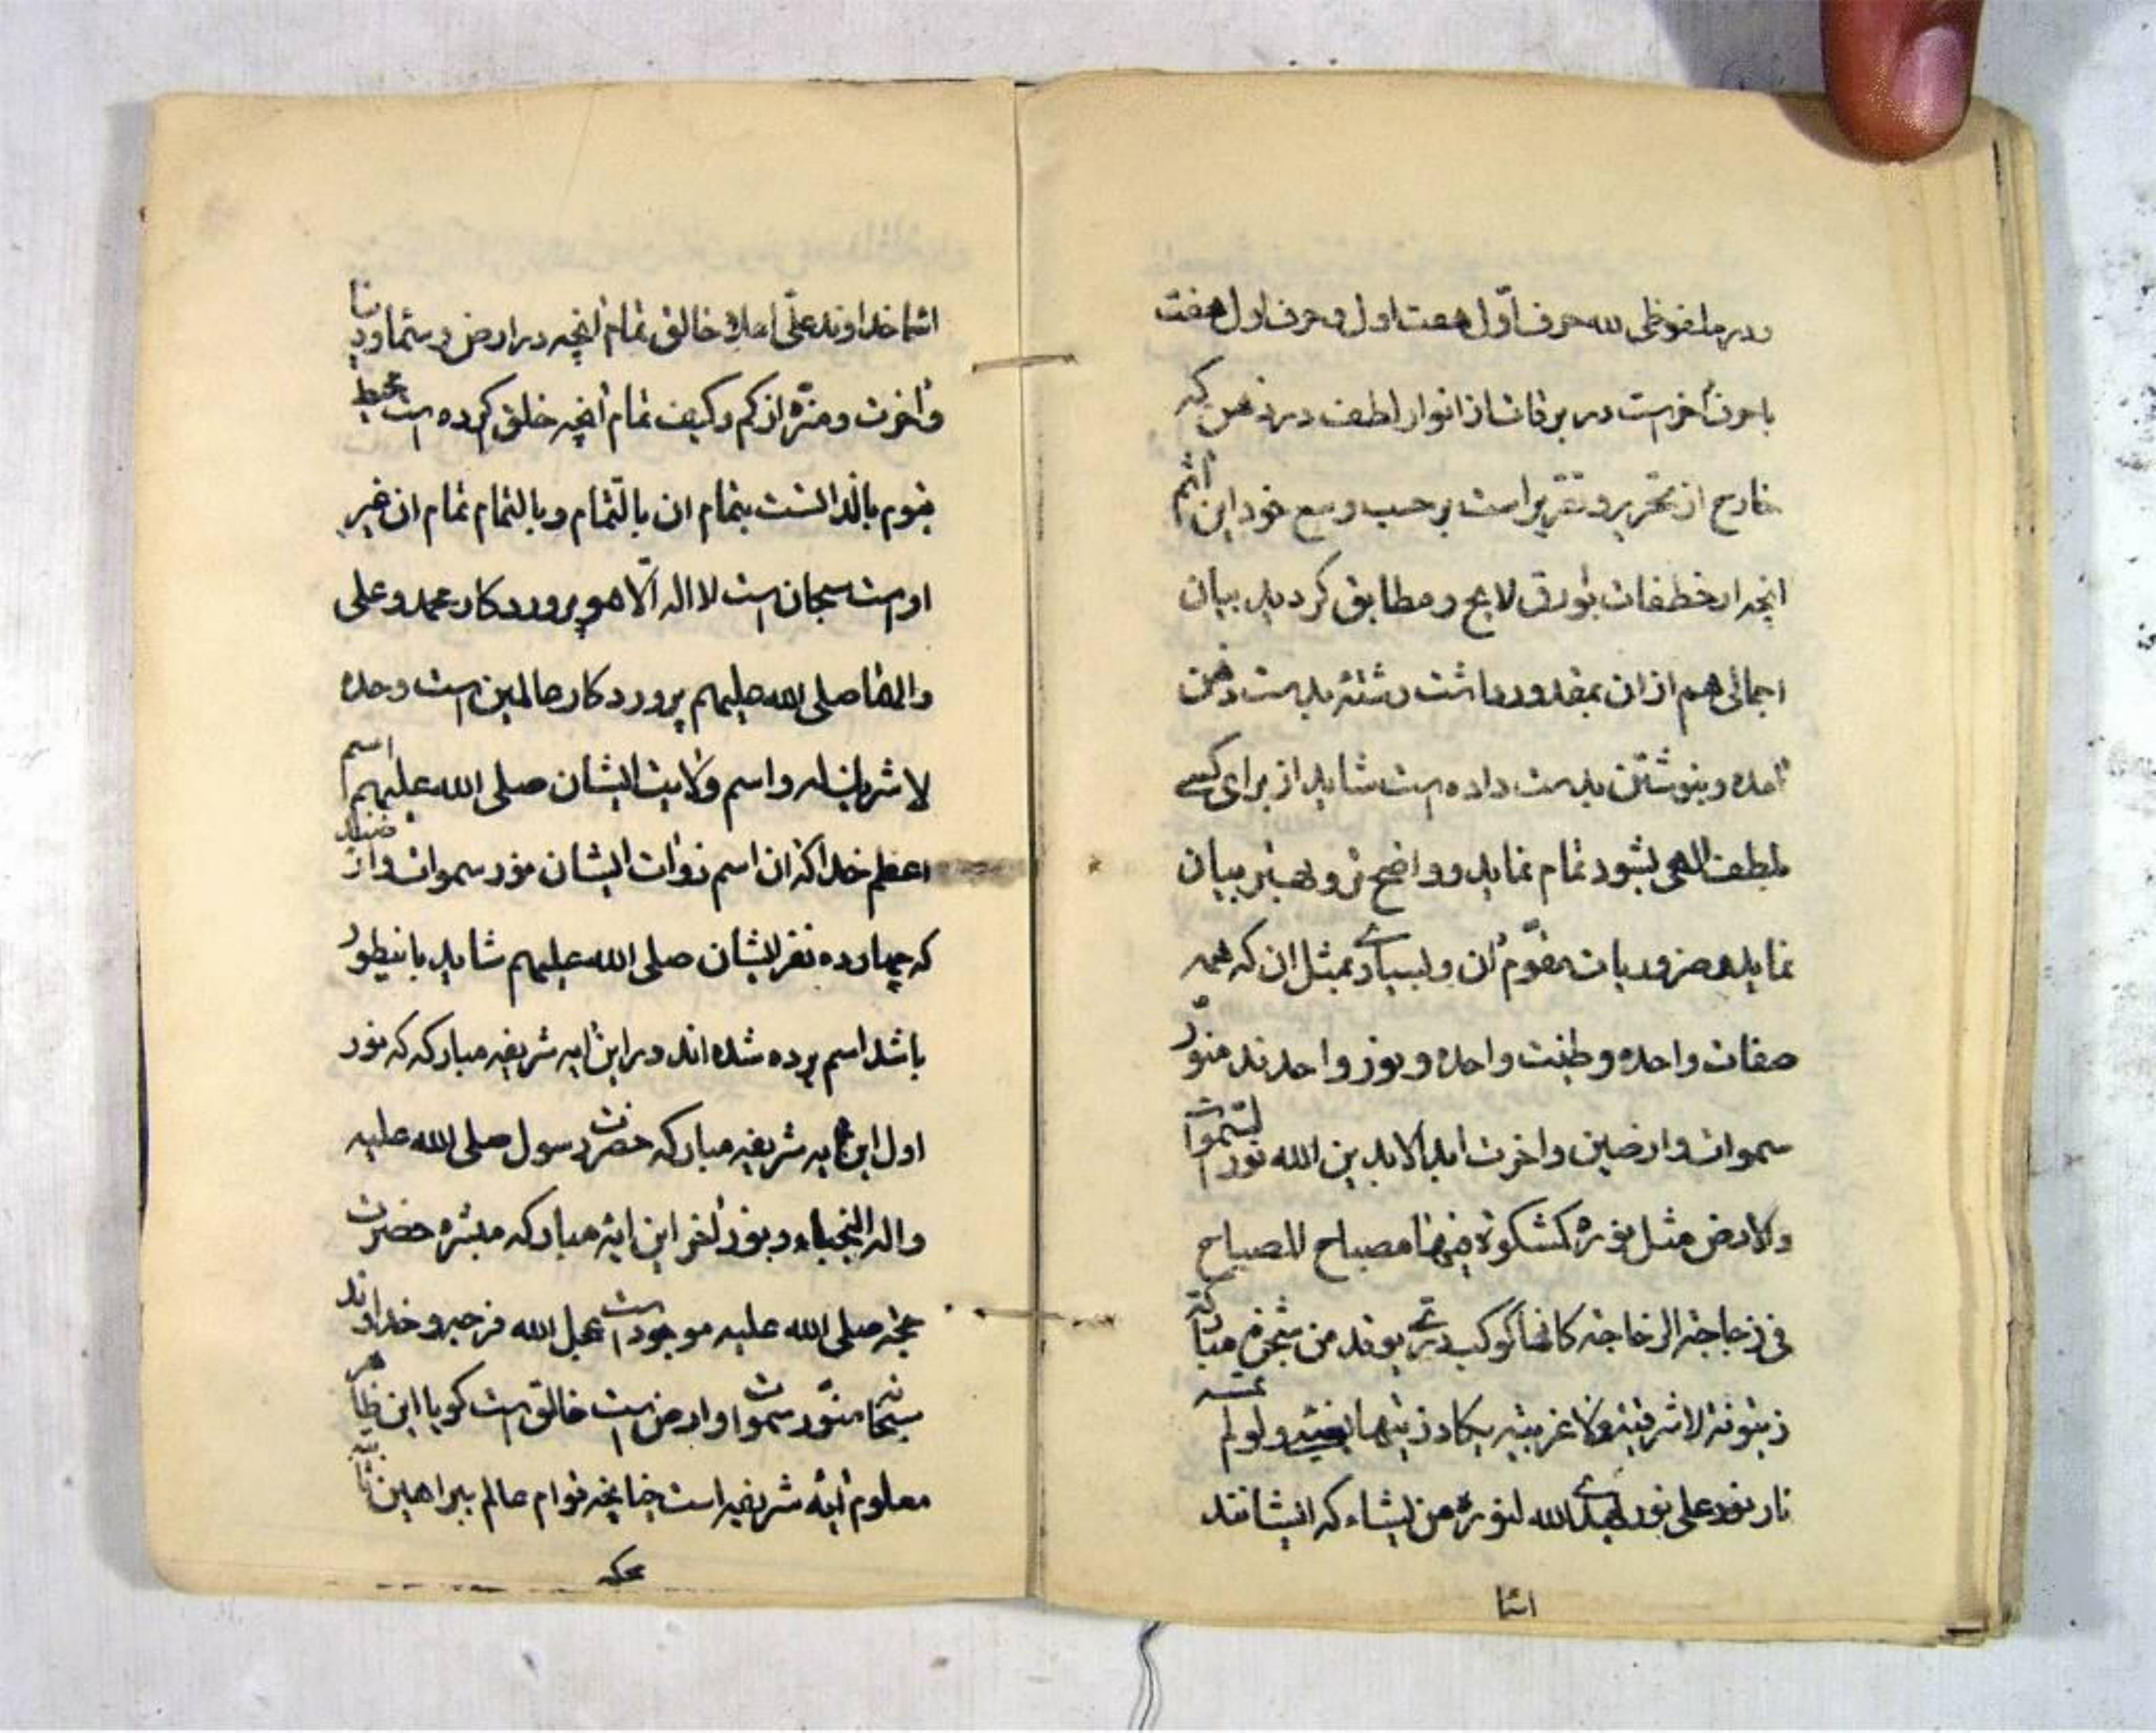 ودر ملفوظی لله حرف اوّل هفت اول و حرف اول هفت
با حرف آخر است در برقات از انوار لطف در ذهن که
خارج از تحریر و تقریر است بر حسب وسع خود این اثم
انچه از خطفات بوارق لایح و مطابق کردید بیان
اجمالی هم از ان بمقدور داشت رشته بدست ذهن
آمده و بنوشتن بدست داده است شاید از برای کسے
لطف الهی بشود تمام نماید و واضح تر و بهتر بیان
نماید ضروریات مقوّم آن و بسیارے بمثل ان که همه
صفات واحده و طینت واحده و نور واحدند منوّر
سموات و ارضین و اخرت ابد الابدین الله نور السّموات
والارض مثل نوره کمشکوة فیها مصباح المصباح
فی زجاجة الزجاجة کانها کوکب درّی یوقد من شجرة مبارکة
زیتونة لا شرقیة ولا غربیة یکاد زیتها یضیئ ولو لم تمسسه
نار نور علی نور یهدے الله لنوره من یشاء که ایشانند
اسما
اسما خداوند علّی اعلا خالق تمام انچه در ارض و سما و دنیا
و آخرت و منزّه از کم و کیف تمام انچه خلق کرده است محیط
قیوم بالذات است بتمام ان بالتّمام و بالتمام تمام ان غیر
اوست سبحان است لا اله الّا هو پروردکار محمد و علی
والهما صلی الله علیهم پروردکار عالمین است وحده
لا شریک له و اسم ولایت ایشان صلی الله علیهم اسم
اعظم خدا که ان اسم ذوات ایشان منور سموات و ارضند
که چهارده نفر ایشان صلی الله علیهم شاید باینطور
باشد اسم برده شده اند در این آیه شریفه مبارکه که نور
اول این آیه شریفه مبارکه حضرت رسول صلی الله علیه
واله النجباء و نور آخر این آیه مبارکه مبشره حضرت
حجه صلی الله علیه موجود است عجل الله فرجه و خداوند
سبحانه منوّر سموات و ارض است خالق است کویا این ظاهر
معلوم آیه شریفه است چنانچه قوام عالم ببراهین ثابته
محکمه